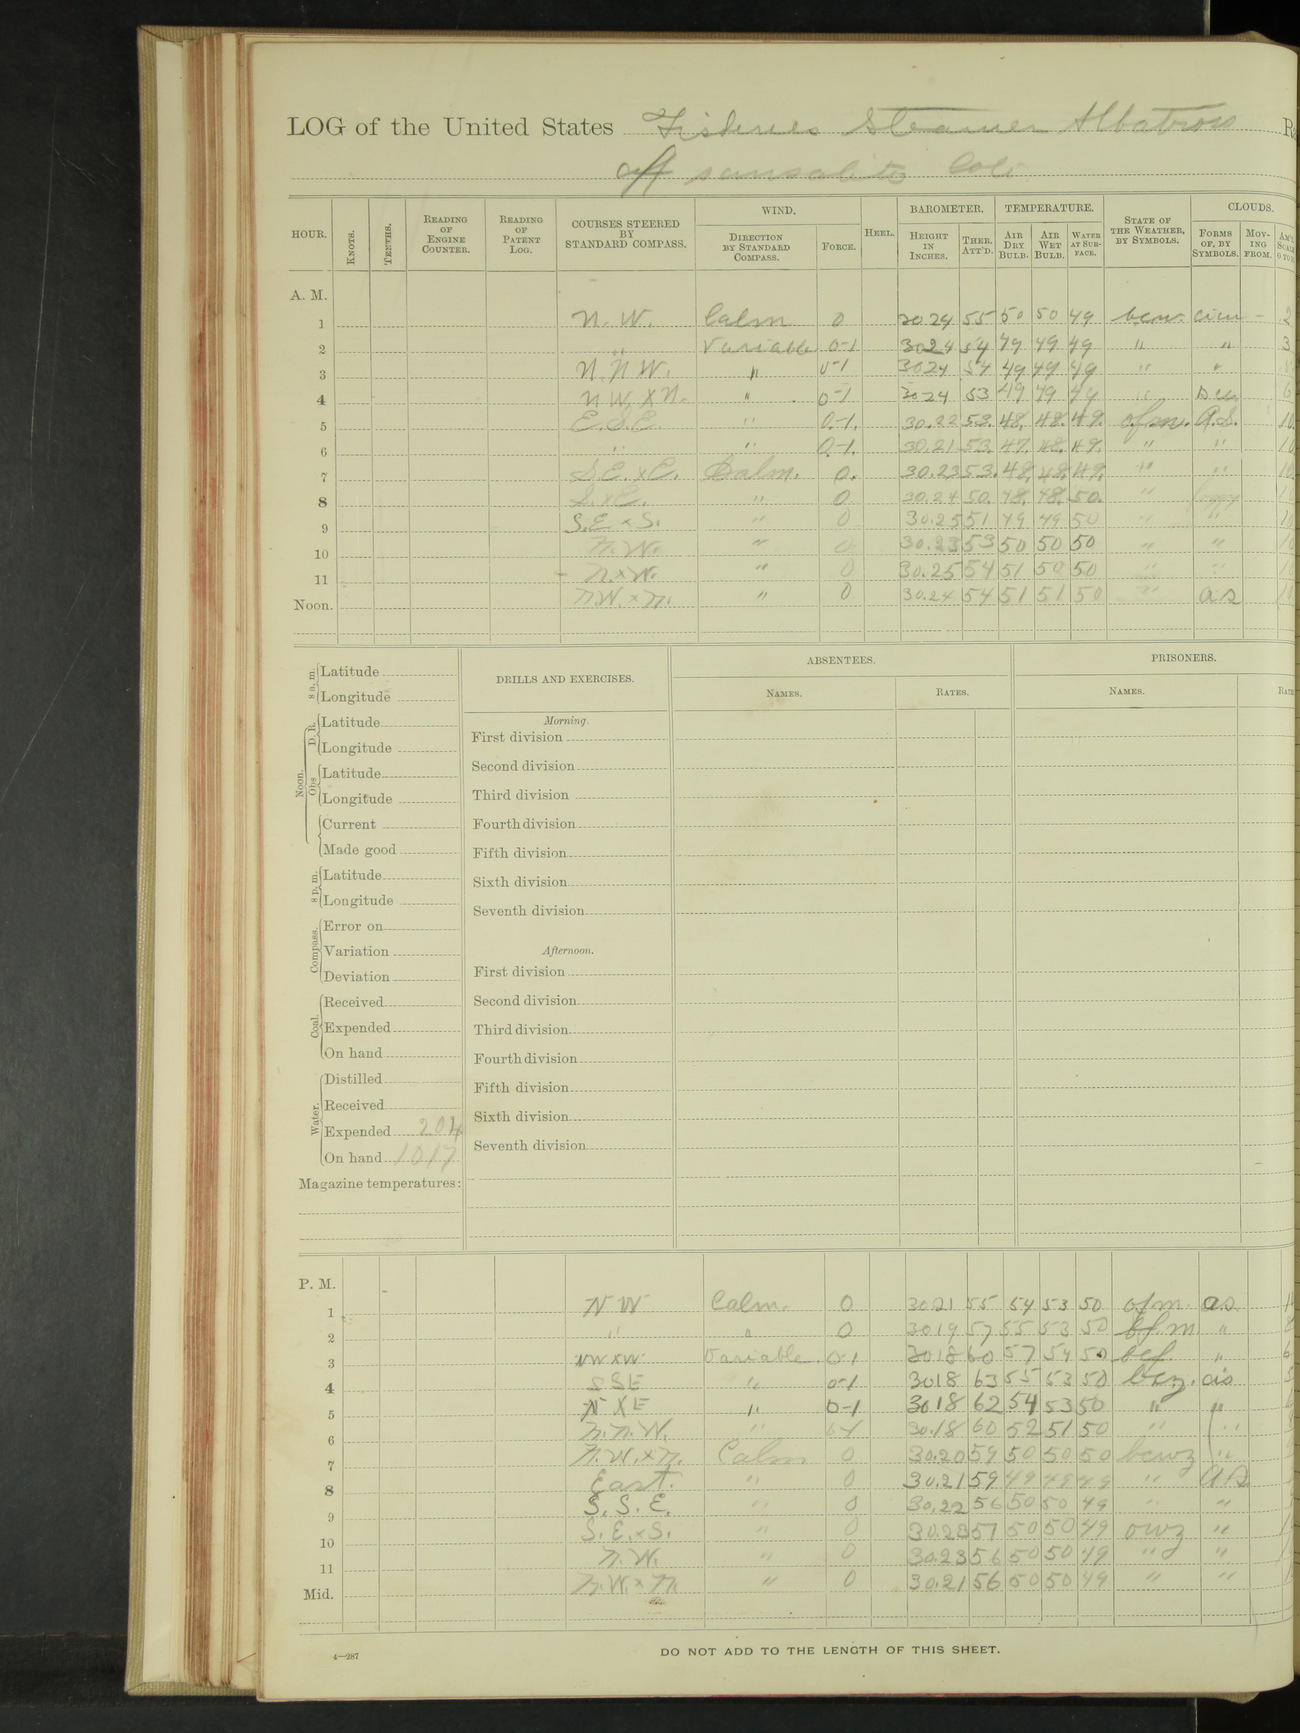 LOG of the United States Fisheries Steamer Albatross
off sausalito Cali
HOUR. KNOTS. TENTHS. READING OF ENGINE COUNTER. READING OF PATENT LOG. COURSES STEERED BY STANDARD COMPASS. WIND. DIRECTION BY STANDARD COMPASS. FORCE. HEEL. BAROMETER. HEIGHT IN INCHES. THER. ATT'D. TEMPERATURE. AIR DRY BULB. AIR WET BULB. WATER AT SURFACE. STATE OF THE WEATHER, BY SYMBOLS. CLOUDS. FORMS OF, BY SYMBOLS. MOVING FROM.
A. M.
1 N. W. Calm 0 30.24 55 50 50 49 bcm - 2
2 " Variable 0-1 30.24 54 49 49 49 " " 3
3 N. N W. " 0-1 30.24 54 49 49 49 " "
4 N W. x N. " 0-1 30.24 53 49 49 49 " 6
5 E. S. E. " 0-1. 30.22 53. 48. 48. 49. ofm. A.S. 10.
6 " " 0-1. 30.21 53. 47. 48. 49. " " 10
7 S E. x E. Calm. 0. 30.23 53. 48. 48. 49. " " 10
8 S. x E. " 0 30.24 50. 48. 48. 50. " foggy 10
9 S. E x S. " 0 30.25 51 49 49 50 " " 10
10 N. W. " 0 30.23 53 50 50 50 " " 10
11 N. x W. " 0 30.25 54 51 50 50 " " 10
Noon. N W. x N. " 0 30.24 54 51 51 50 " as 10
8 a. m. Latitude
Longitude
Noon. D. R. Latitude
Longitude
Obs Latitude
Longitude
Current
Made good
8 p. m. Latitude
Longitude
Compass. Error on
Variation
Deviation
Coal. Received
Expended
On hand
Water. Distilled
Received
Expended 204
On hand 1017
Magazine temperatures:
DRILLS AND EXERCISES.
Morning.
First division
Second division
Third division
Fourth division
Fifth division
Sixth division
Seventh division
Afternoon.
First division
Second division
Third division
Fourth division
Fifth division
Sixth division
Seventh division
ABSENTEES.
NAMES. RATES.
PRISONERS.
NAMES.
P. M.
1 N W Calm. 0 30.21 55 54 53 50 ofm. as
2 " " 0 30.19 57 55 53 50 bfm "
3 NW x W Variable 0-1 30.18 60 57 54 50 bcf " 6
4 SSE " 0-1 30.18 63 55 53 50 bcz. cis
5 N x E " 0-1 30.18 62 54 53 50 " "
6 N. N. W. " 0-1 30.18 60 52 51 50 " "
7 N. W. x N. Calm 0 30.20 59 50 50 50 bcwz "
8 East. " 0 30.21 59 49 49 49 " as
9 S. S. E. " 0 30.22 56 50 50 49 " "
10 S. E. x S. " 0 30.23 57 50 50 49 owz "
11 N. W. " 0 30.23 56 50 50 49 " "
Mid. N. W. x N. " 0 30.21 56 50 50 49 " "
4—287
DO NOT ADD TO THE LENGTH OF THIS SHEET.